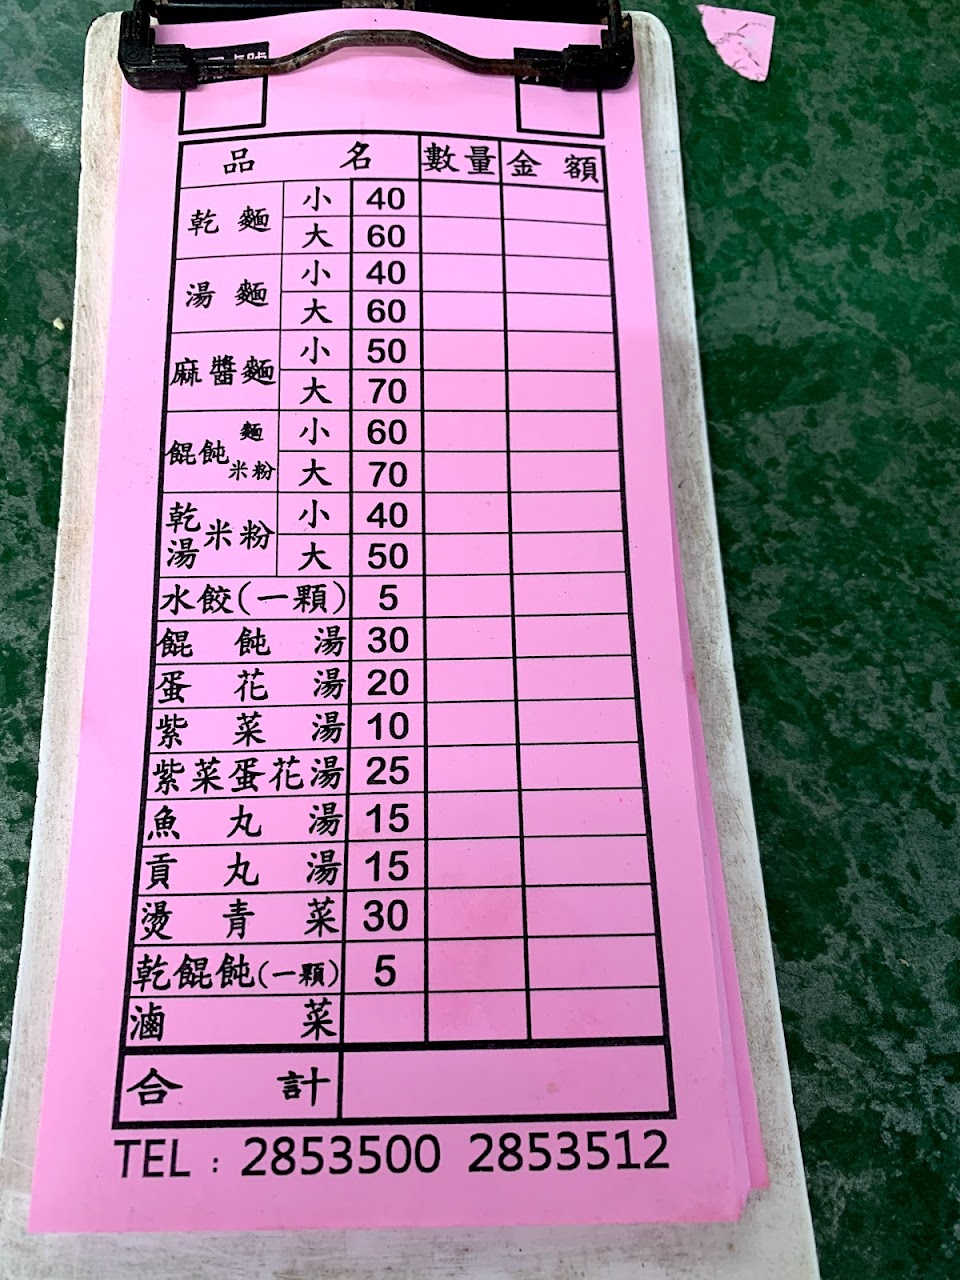 品名 數量 金額
乾麵 小 40
大 60
湯麵 小 40
大 60
麻醬麵 小 50
大 70
餛飩 麵 米粉 小 60
大 70
乾 湯 米粉 小 40
大 50
水餃(一顆) 5
餛飩湯 30
蛋花湯 20
紫菜湯 10
紫菜蛋花湯 25
魚丸湯 15
貢丸湯 15
燙青菜 30
乾餛飩(一顆) 5
滷菜
合計
TEL：2853500 2853512